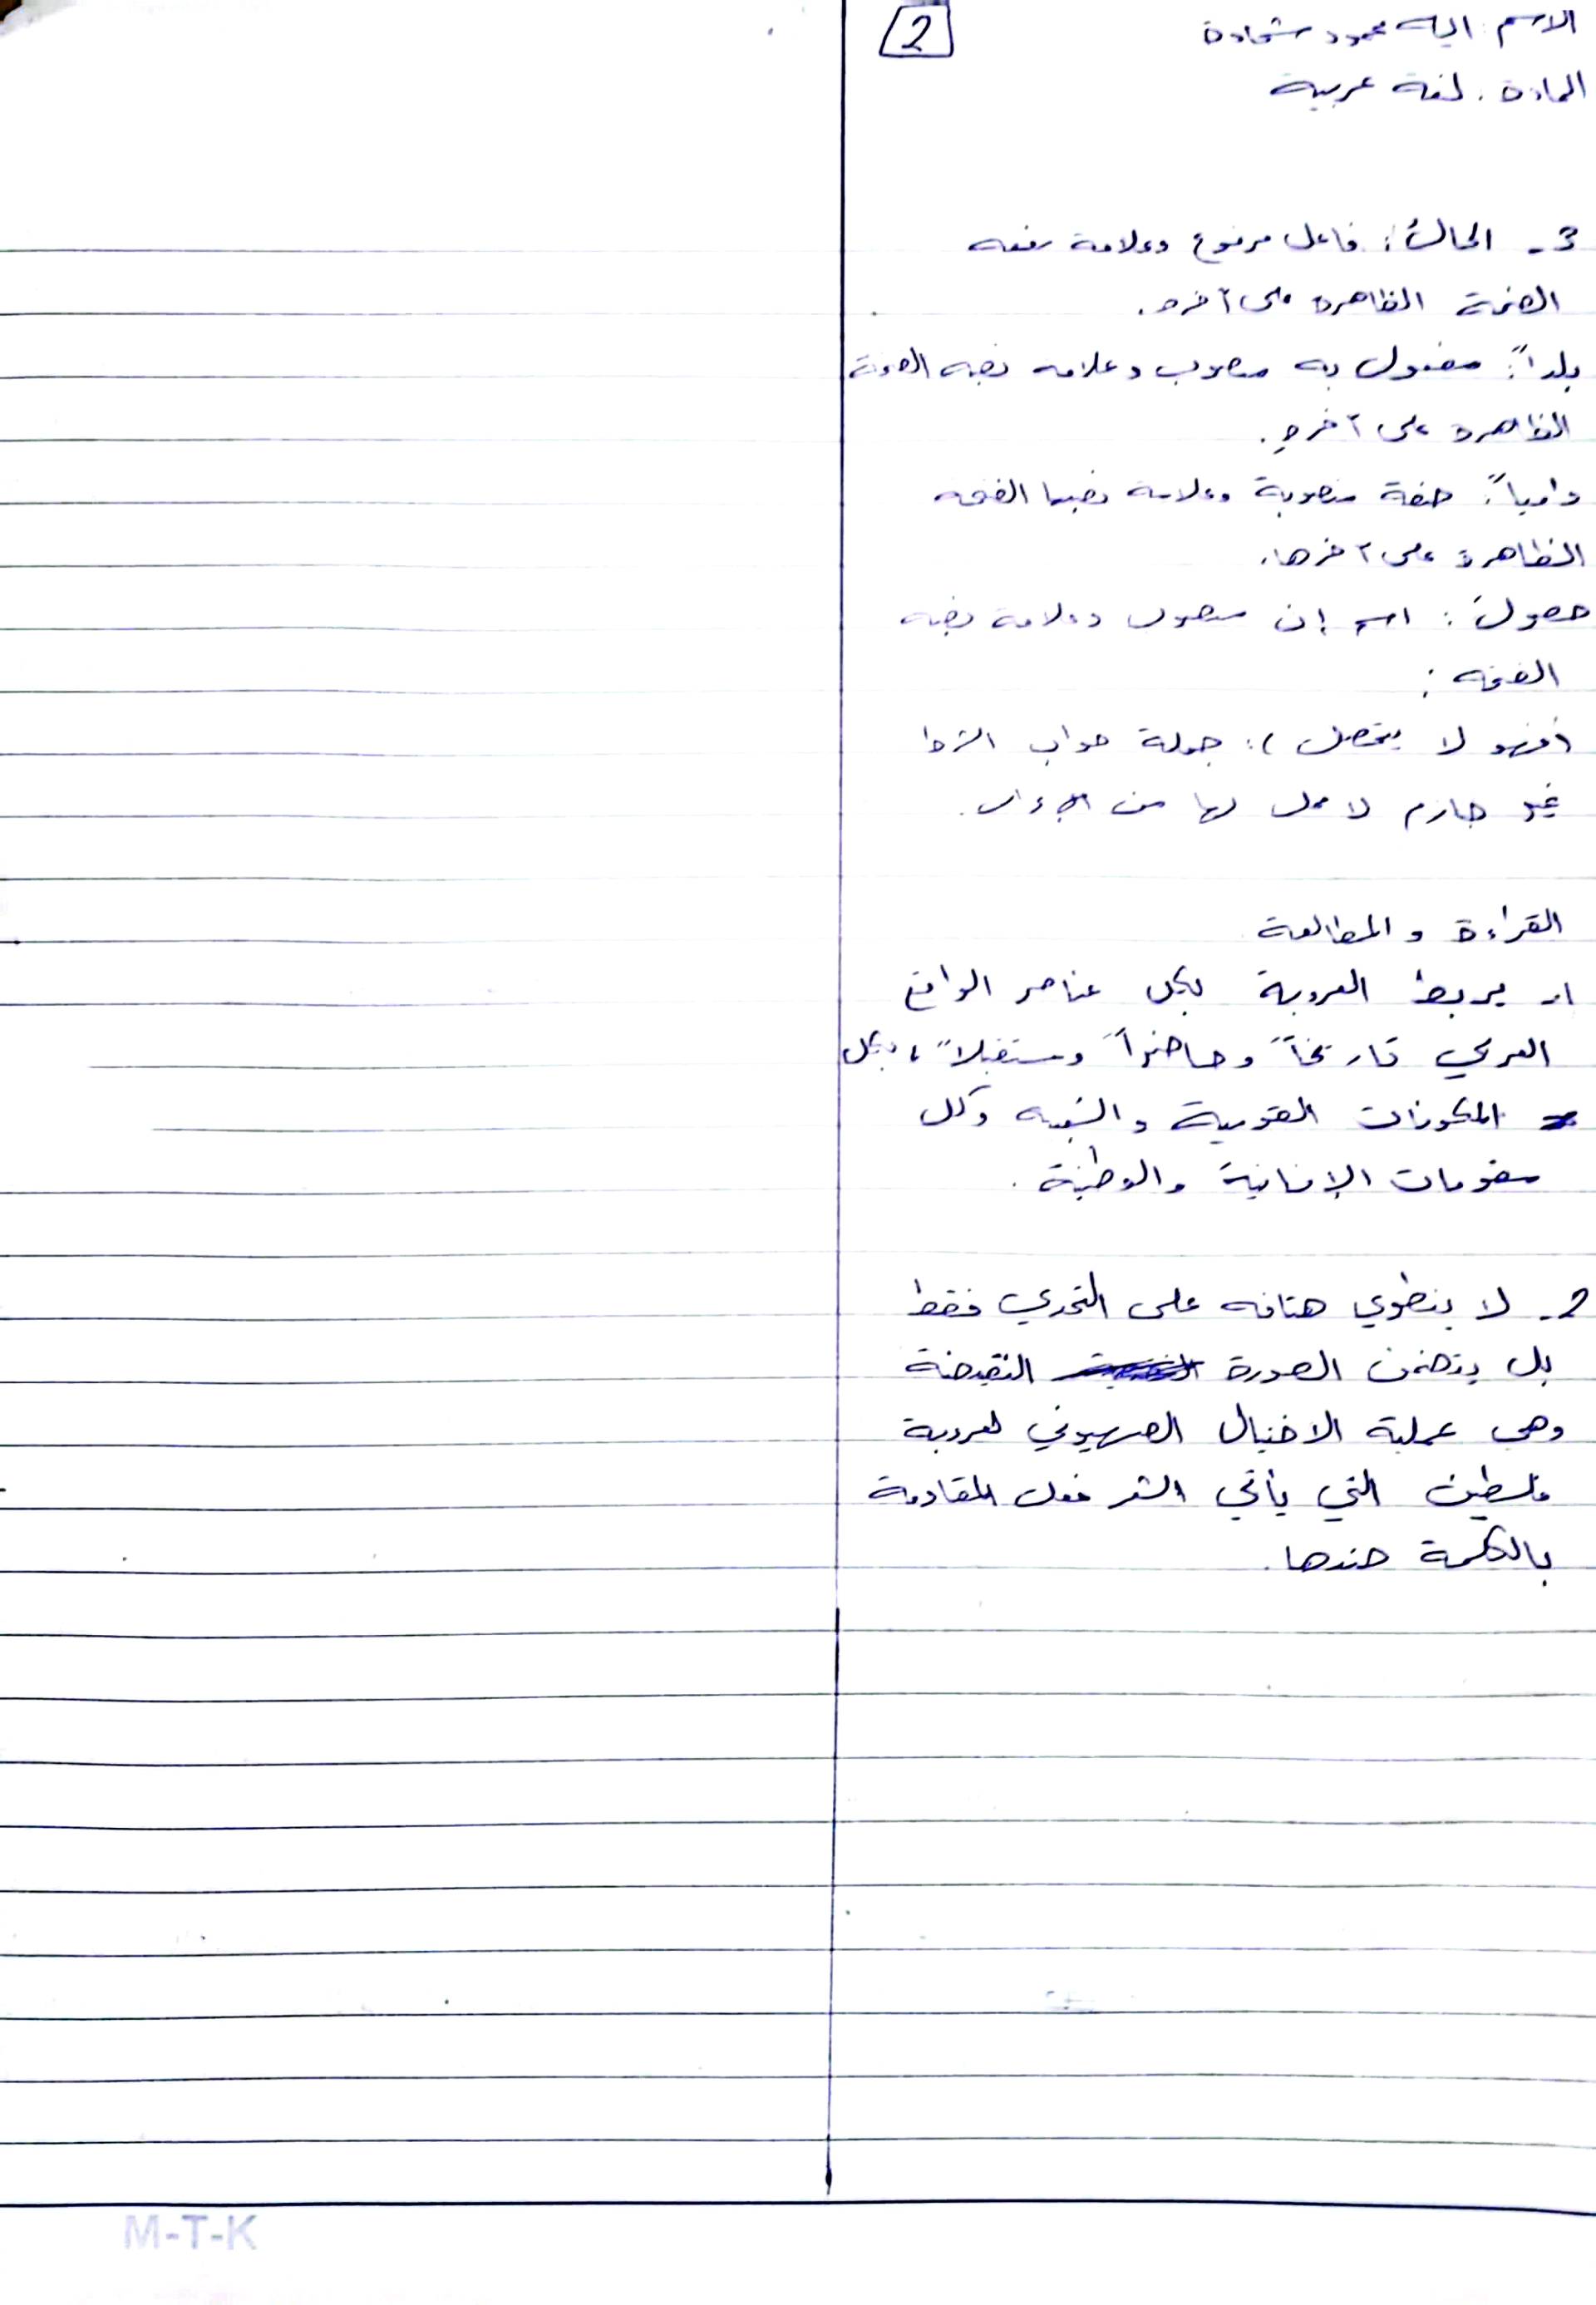 2
الاسم: اية محمود شحادة
المادة. لغة عربية
3- الحالُ: فاعل مرفوع وعلامة رفعه
الضمة الظاهرة على آخره.
بلداً: مفعول به منصوب وعلامه نصبه الفتحة
الظاهرة على آخره.
دامياً: صفة منصوبة وعلامة نصبها الفتحه
الظاهرة على آخرها.
حصولَ: اسم إن منصوب وعلامة نصبه
الفتحه:
(فهو لا يتحصل): جملة جواب الشرط
غير جازم لا محل لها من الإعراب.
القراءة والمطالعة
1- يربط العروبة بكل عناصر الواقع
العربي تاريخاً وحاضراً ومستقبلاً، بكل
المكونات القومية والشعبيه وكل
مقومات الإنسانية والوطنية.
2- لا ينطوي هتافه على التحدي فقط
بل يتضمن الصورة النقيضة
وهي عملية الاغتيال الصهيوني لعروبة
فلسطين التي يأتي الشعر فعل المقاومة
بالكلمة ضدها.
M-T-K